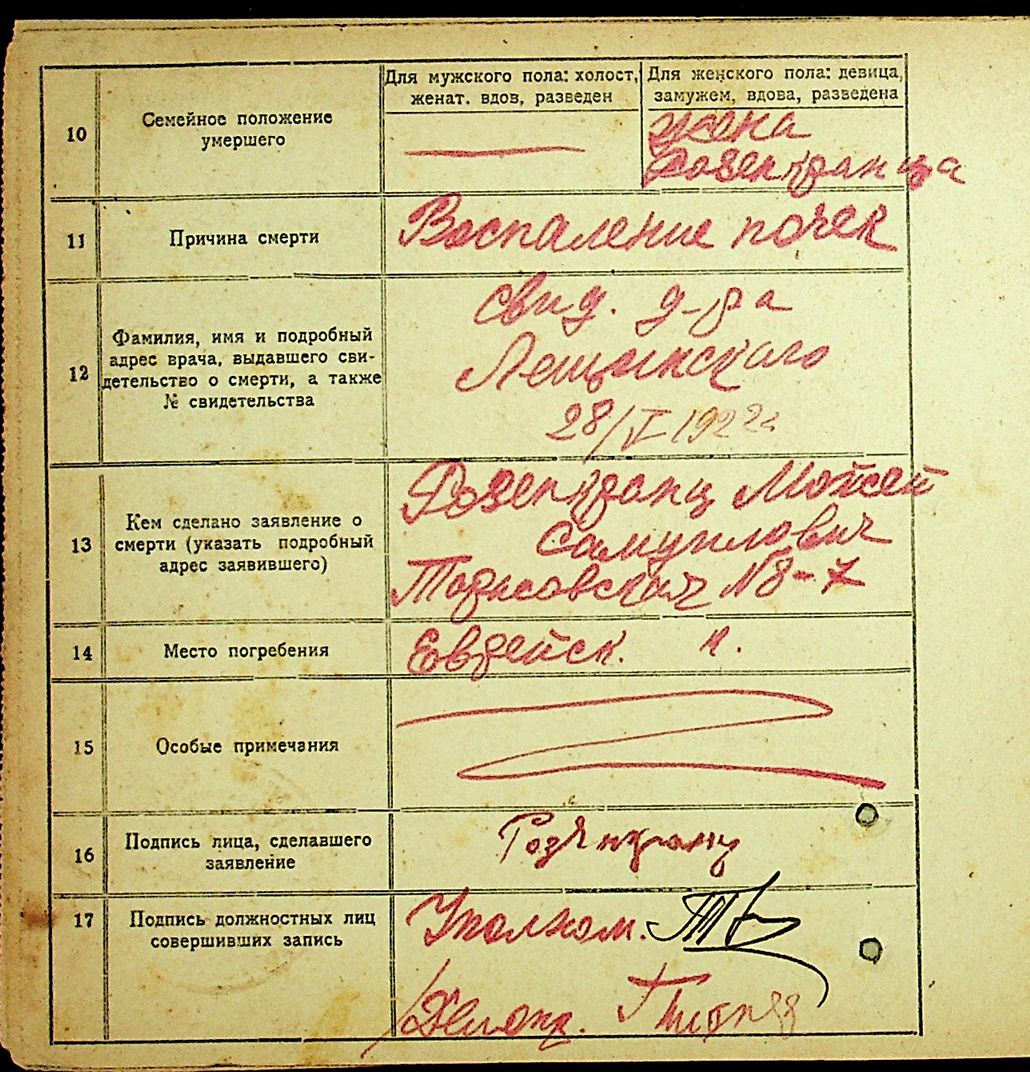 Для мужского пола: холост,
женат. вдов, разведен
Для женского пола: девица,
замужем, вдова, разведена
10
Семейное положение
умершего
жена
Розенкранца
11
Причина смерти
Воспаление почек
12
Фамилия, имя и подробный
адрес врача, выдавшего сви-
детельство о смерти, а также
№ свидетельства
свид. д-ра
Лещинского
28/V 1922г
13
Кем сделано заявление о
смерти (указать подробный
адрес заявившего)
Розенкранц Мойсей
Самуилович
N8-7
14
Место погребения
Еврейск. к.
15
Особые примечания
16
Подпись лица, сделавшего
заявление
Розенкранц
17
Подпись должностных лиц
совершивших запись
Уполном.
Делопр.